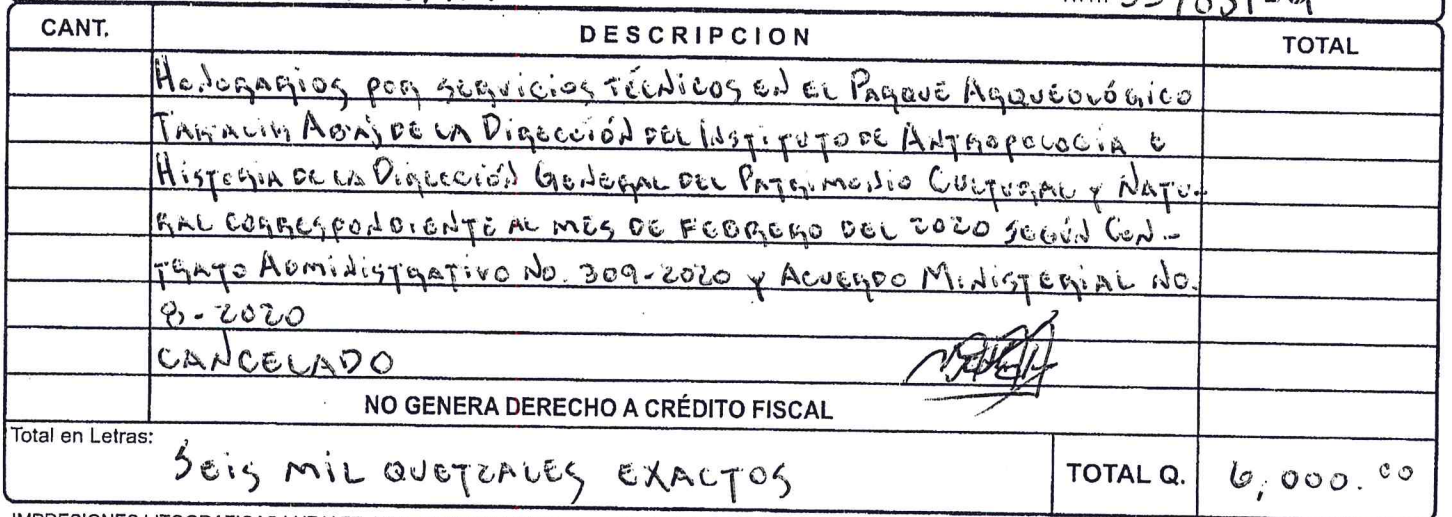 CANT. DESCRIPCION TOTAL
Honorarios por servicios técnicos en el Parque Arqueológico
Takalik Abaj de la Dirección del Instituto de Antropología e
Historia de la Dirección General del Patrimonio Cultural y Natu-
ral correspondiente al mes de febrero del 2020 según Con-
trato Administrativo No. 309-2020 y Acuerdo Ministerial No.
8-2020
CANCELADO
NO GENERA DERECHO A CRÉDITO FISCAL
Total en Letras:
Seis mil quetzales exactos TOTAL Q. 6,000.00